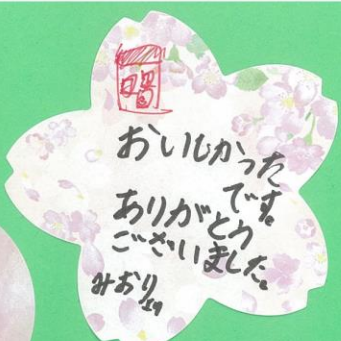 おいしかった
です。
ありがとう
ございました。
みおり